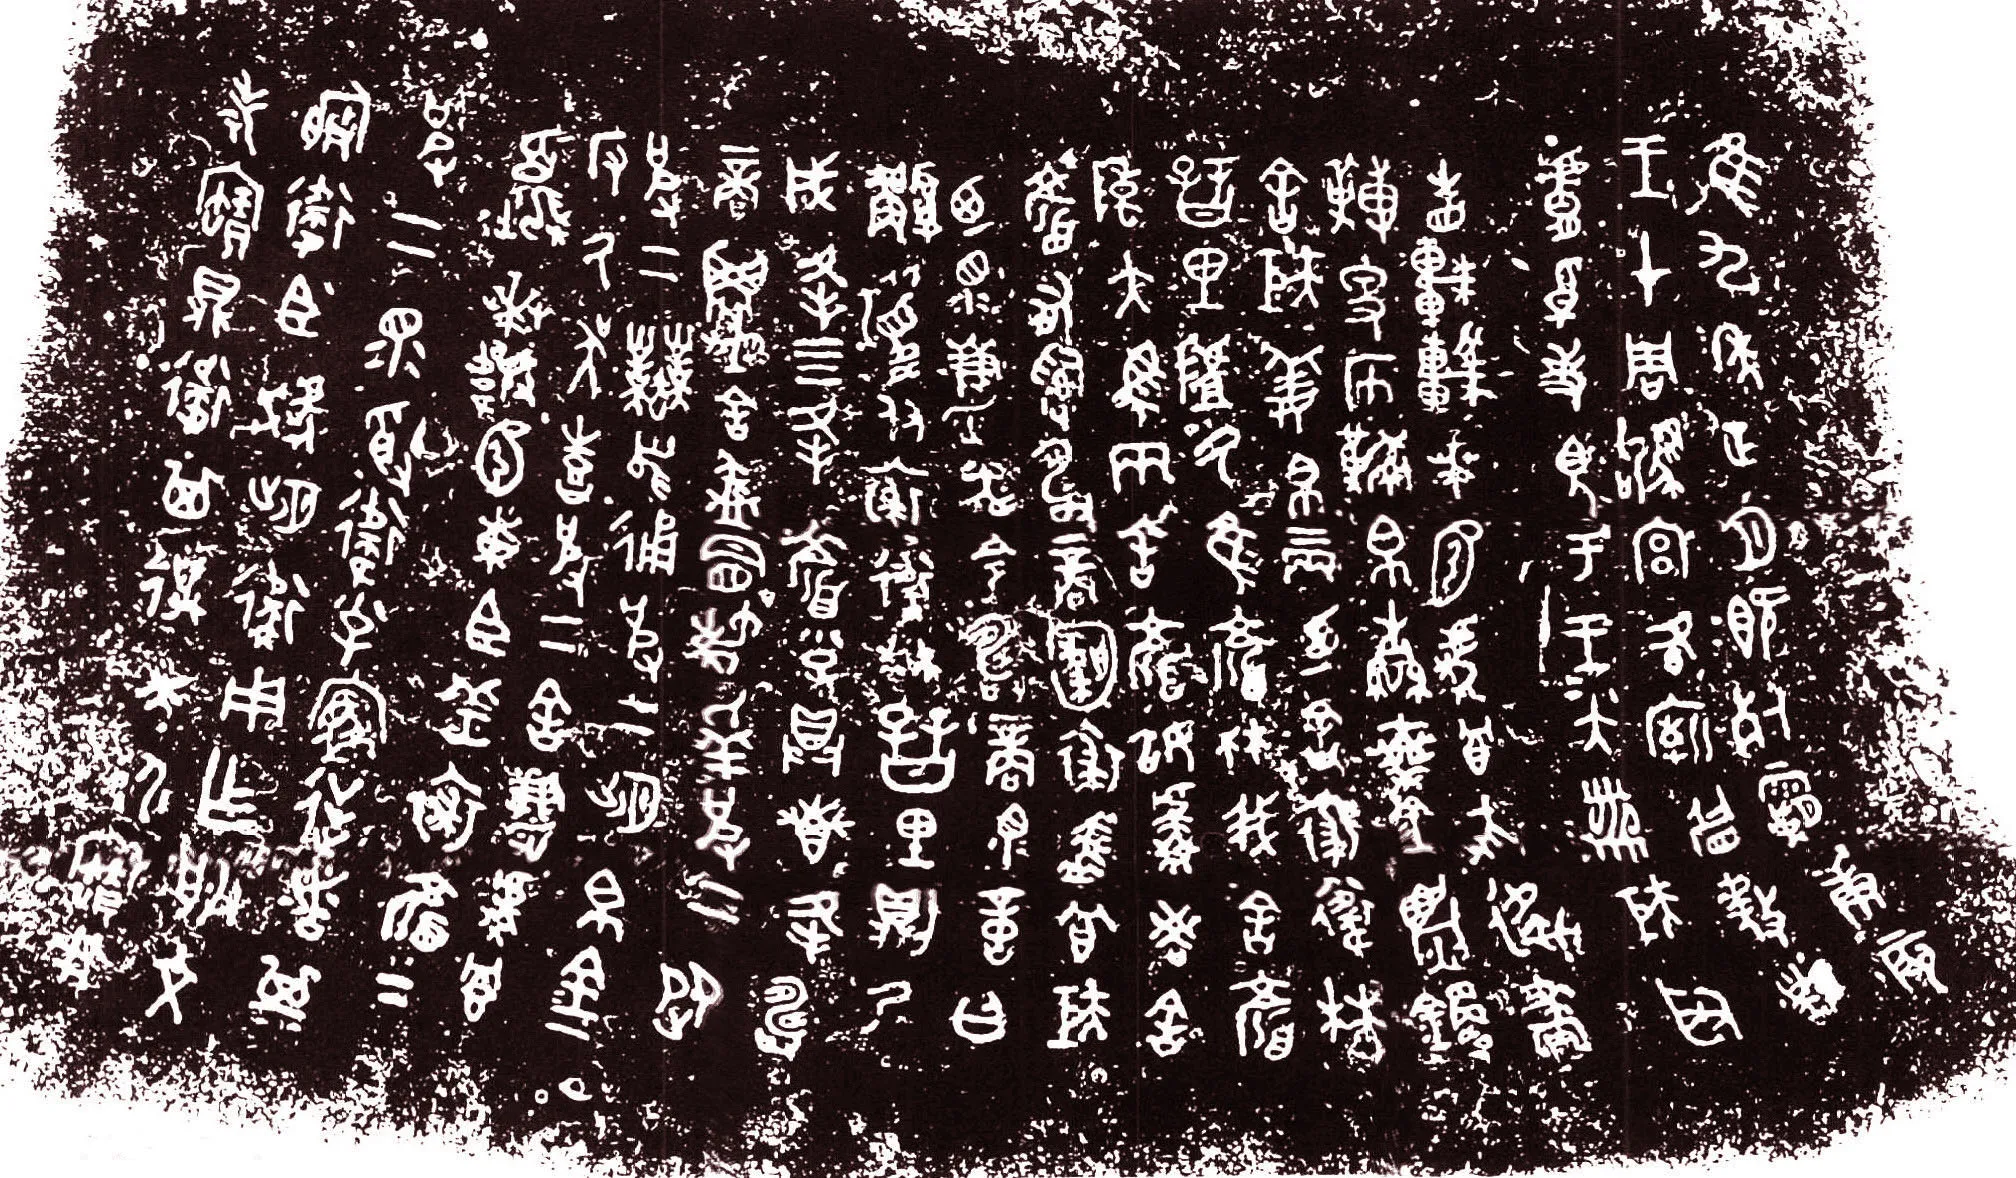 隹九年正月既死霸庚辰
王才周駒宮各廟眉敖者
膚爲吏見于王王大黹矩取
眚車較𠦪𠧢虎冟希韋畫
轉席鞣帛轡乘金鑣鋞
舍矩姜帛三兩廼舍裘衛林
里𠭯氒隹顏林我舍顏
陳大馬兩舍顏姒
舍顏有𤔲壽商貈裘盠冟矩
廼眔粦令壽商眔啻曰
顜履付裘衛林里則乃
成夆四夆顏小子具叀夆壽
商舍盠冒梯羝皮二
皮二業舄俑皮二朏帛金一
反氒吳喜皮二舍
冟東臣羔裘顏下
皮二眔受衛小子家逆者其
衛臣朏衛用乍朕文
考寶鼎衛其萬年永寶用